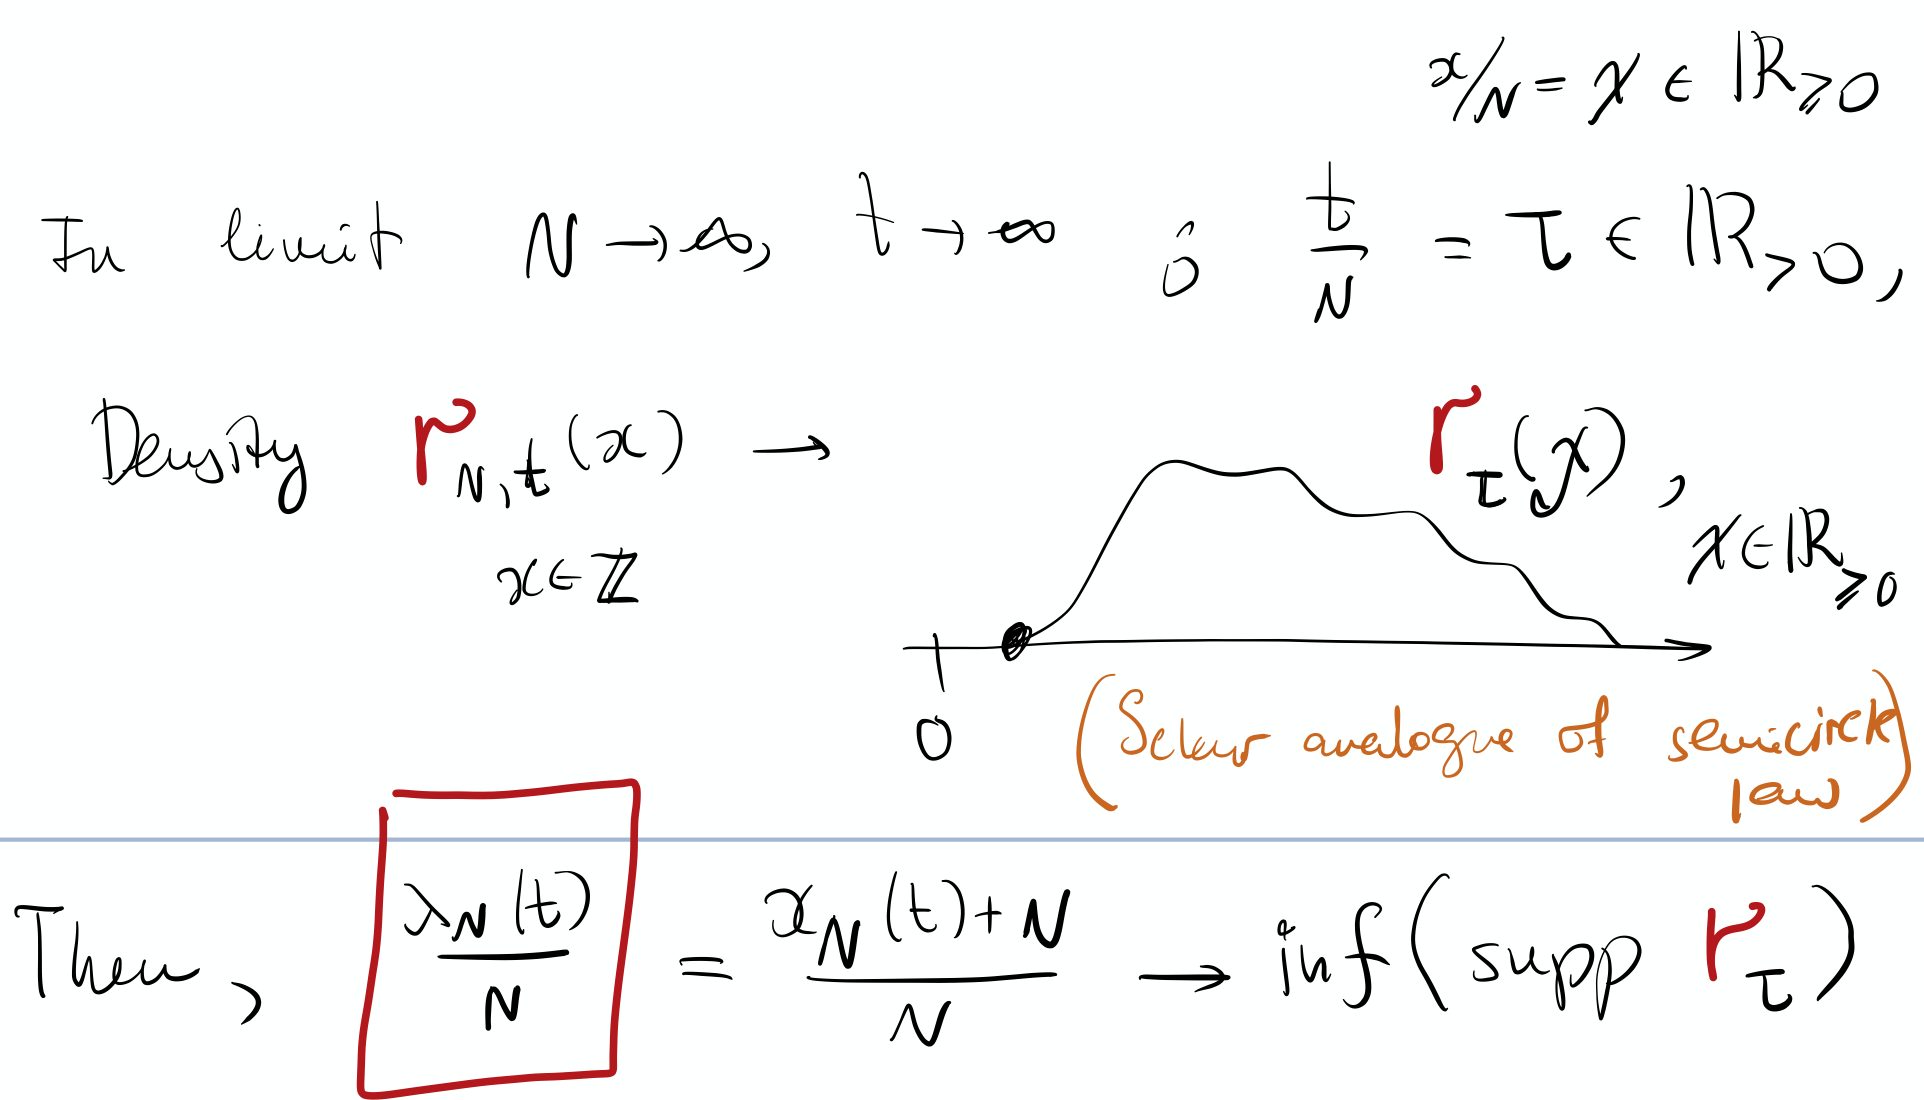 x/N = χ ∈ ℝ≥0
In limit N → ∞, t → ∞ : t/N = τ ∈ ℝ>0,
Density r_{N,t}(x) → r_τ(χ), χ ∈ ℝ≥0
x ∈ ℤ
0
(Schur analogue of semicircle
law)
Then, λ_N(t)/N = (x_N(t)+N)/N → inf(supp r_τ)